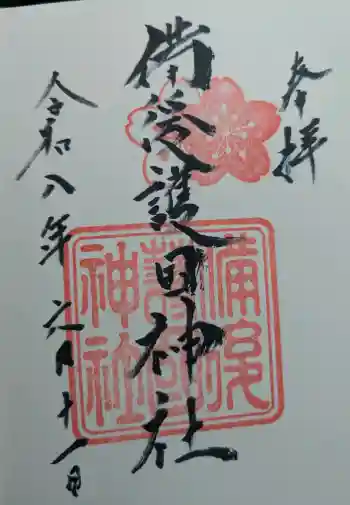 参拝
備後護国神社
令和八年六月十一日
備後
神社